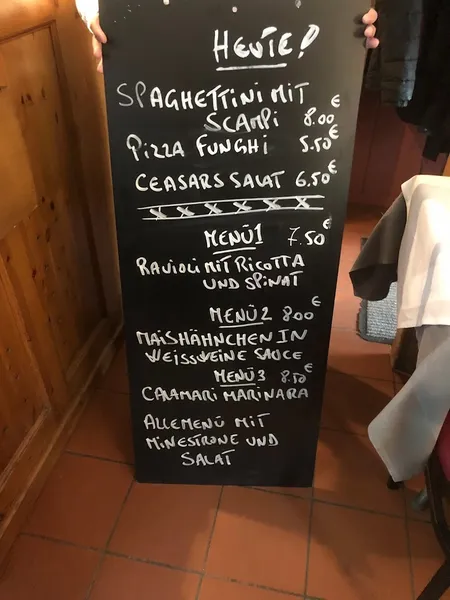 HEUTE!
SPAGHETTINI MIT
SCAMPI 8.00 €
PIZZA FUNGHI 5.50 €
CEASARS SALAT 6.50 €
XXXXXX
MENÜ1 7.50 €
RAVIOLI MIT RICOTTA
UND SPINAT
MENÜ2 8.00 €
MAISHÄHNCHEN IN
WEISSWEINE SAUCE
MENÜ3 8.50 €
CALAMARI MARINARA
ALLEMENÜ MIT
MINESTRONE UND
SALAT